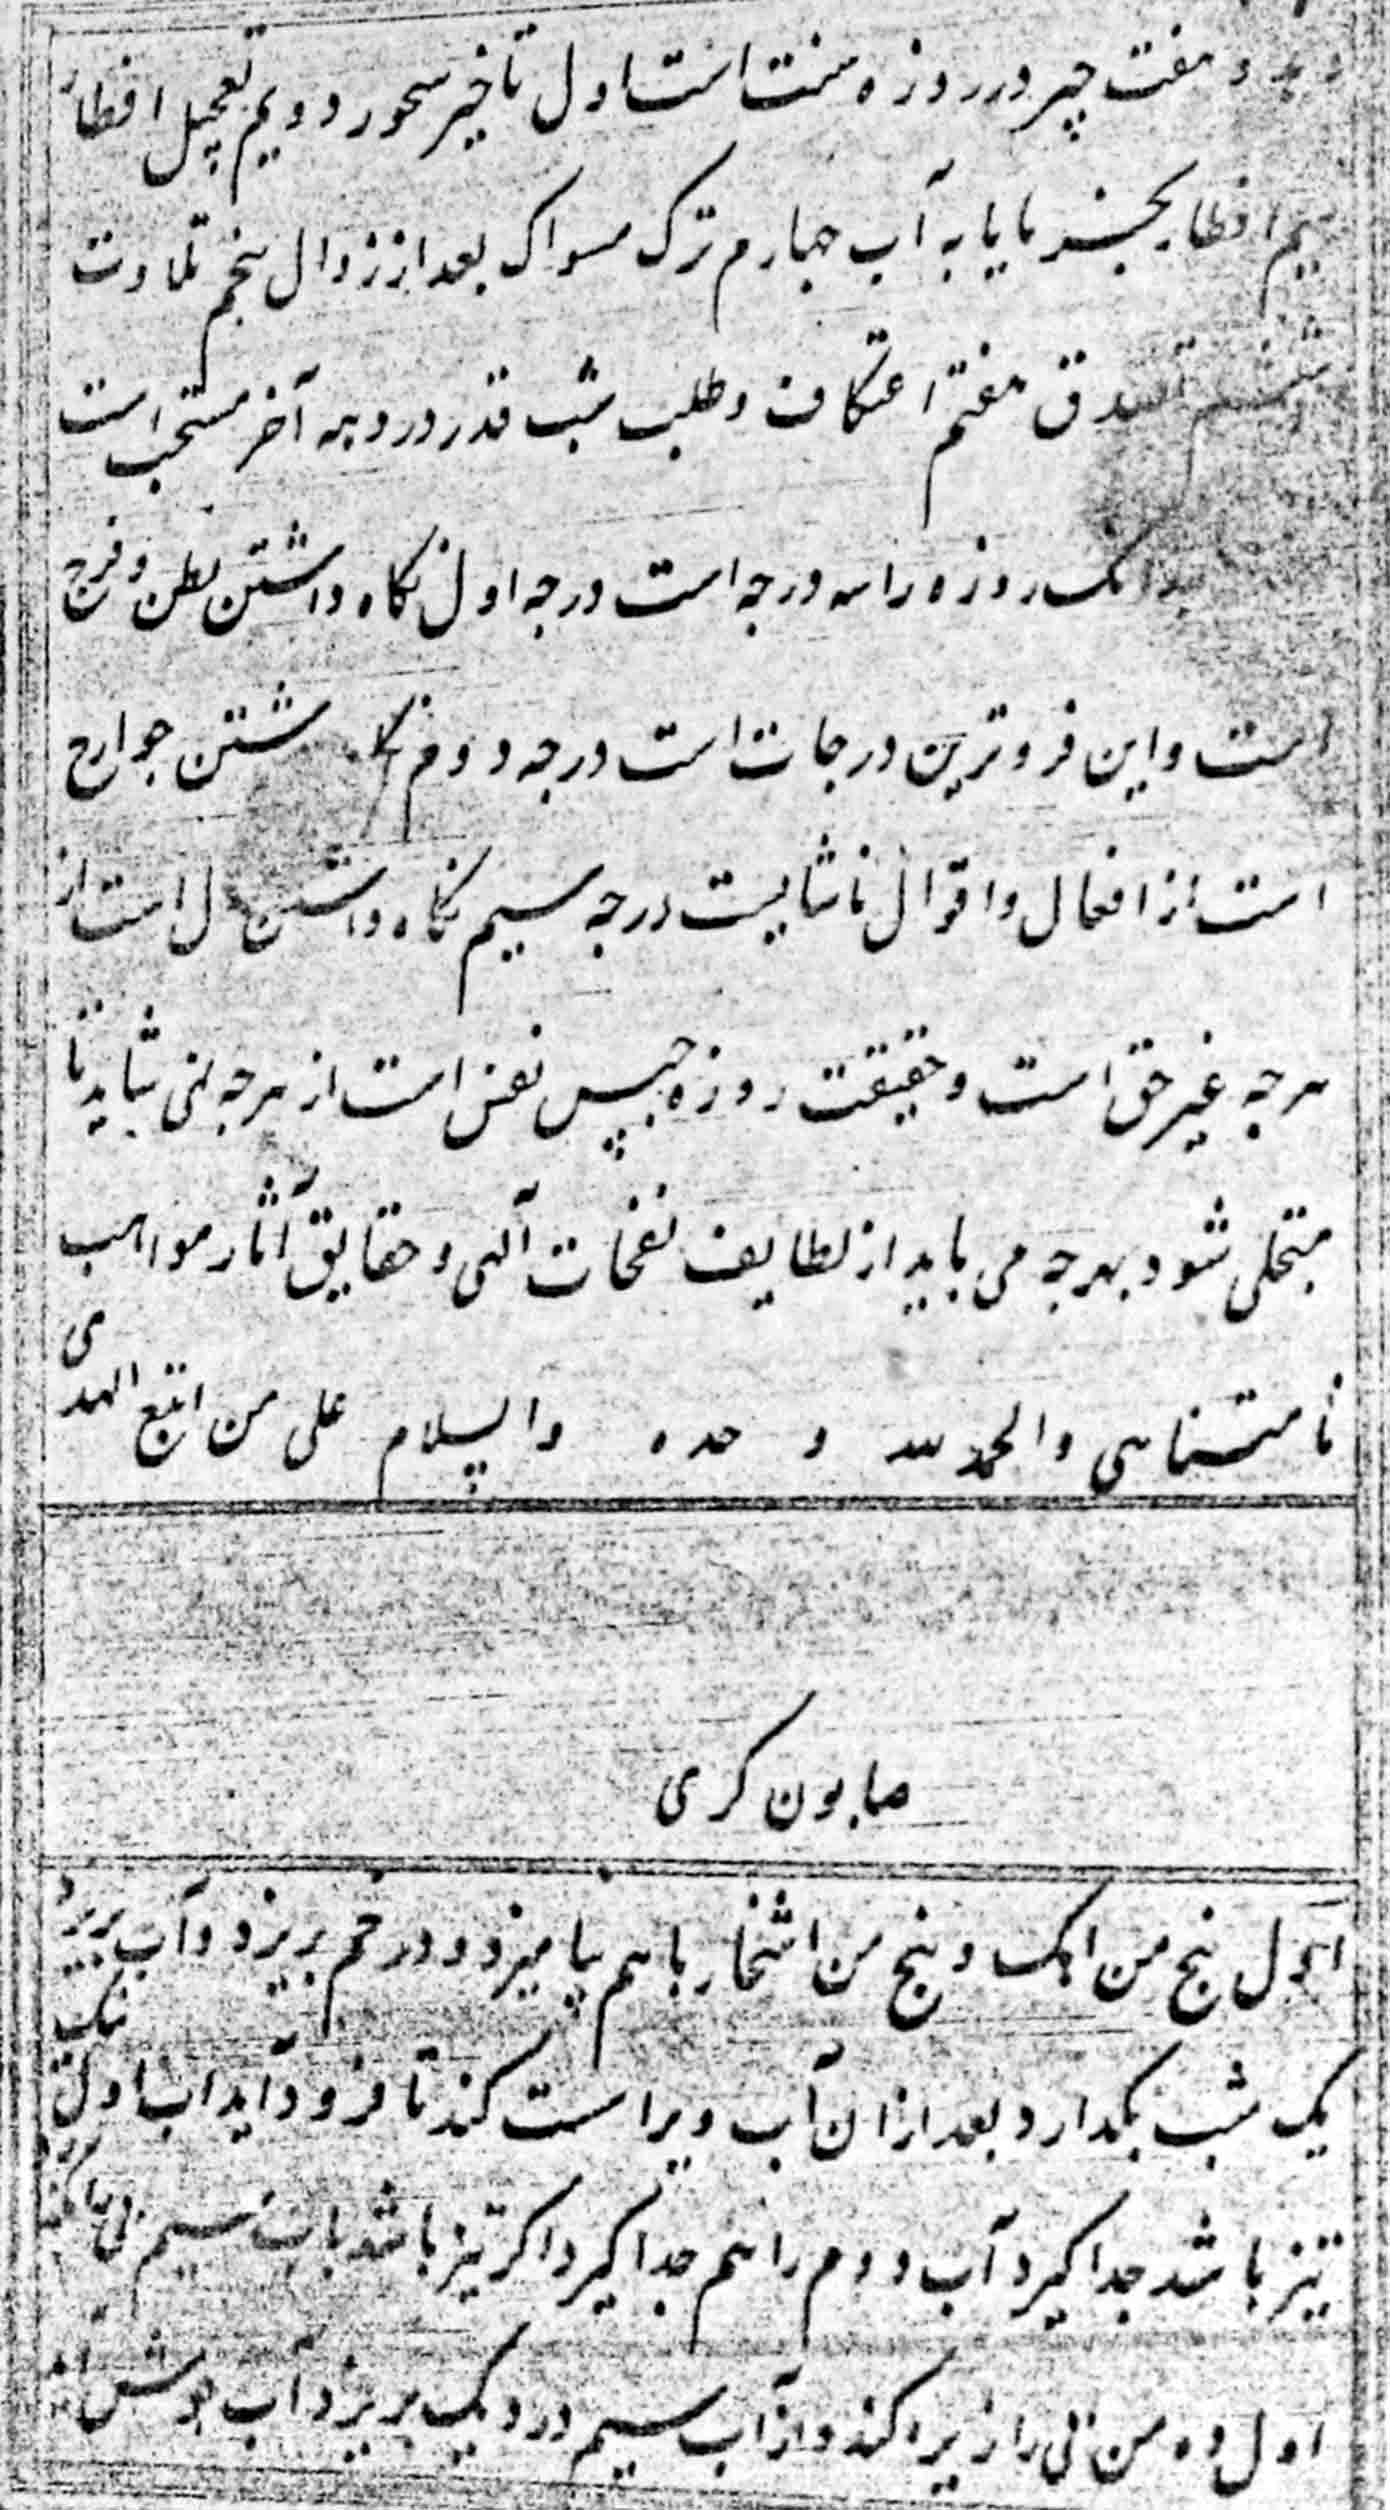 و هفت چیز در روزه سنت است اول تاخیر سحور دویم تعجیل افطار
سیم افطار بخرما یا به آب چهارم ترک مسواک بعد از زوال پنجم تلاوت
ششم تصدق هفتم اعتکاف و طلب شب قدر در دهه آخر مستحب است
بدانک روزه را سه درجه است درجه اول نکاه داشتن بطن و فرج
است و این فروترین درجات است درجه دوم نکا شتن جوارح
است از افعال و اقوال ناشایست درجه سیم نکاه داشتن دل است از
هر چه غیر حق است و حقیقت روزه حبس نفس است از هر چه نمی شاید تا
متحلی شود بهر چه می باید از لطایف نفحات آلهی و حقایق آثار مواهب
نامتناهی والحمد لله وحده والسلام علی من اتبع الهدی
صابون کری
اول پنج من اهک و پنج من اشخار با هم بیامیزد و در خم بریزد و آب بریزد
یک شب بکدارد بعد از ان آب ویرا ست کند تا فرود آید اب اول نیک
تیز باشد جدا کیرد آب دوم را هم جدا کیرد اکر تیز باشد با آب سیم
اول ده من را زیر کند و از آب سیم در دیک بریزد آب جوش